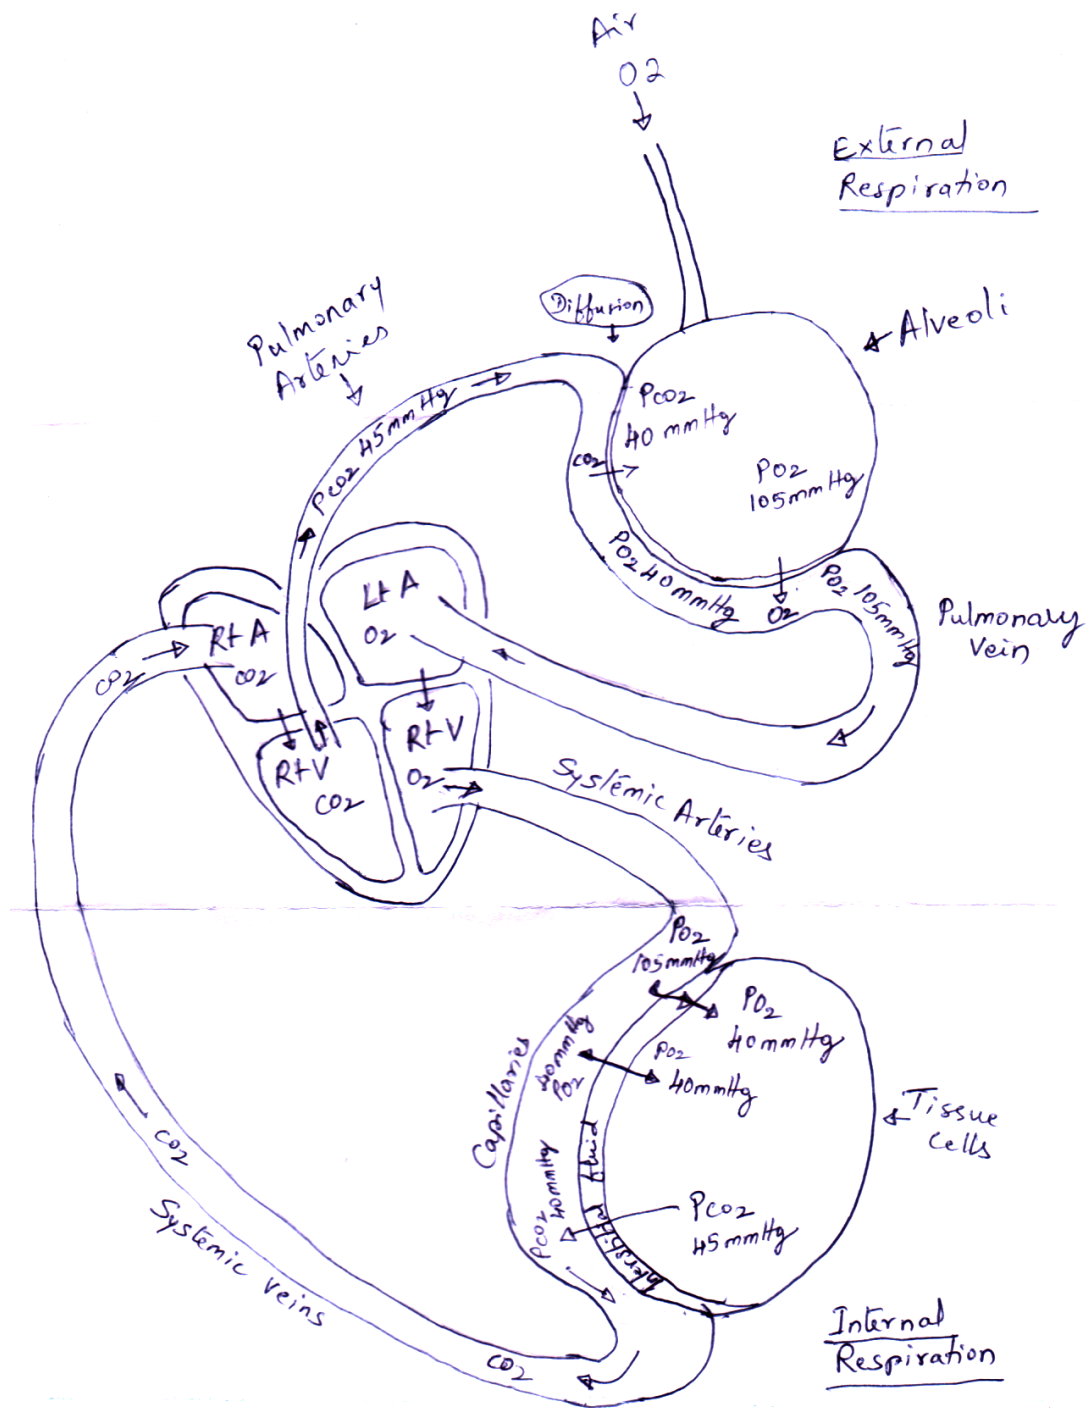 Air
O2
External
Respiration
Diffusion
Alveoli
Pulmonary
Arteries
PCO2 45mmHg
PCO2
40 mmHg
CO2
PO2
105mmHg
PO2 40mmHg
O2
PO2 105mmHg
Pulmonary
Vein
Lt A
O2
Rt A
CO2
CO2
Rt V
CO2
Rt V
O2
Systemic Arteries
PO2
105mmHg
PO2
40mmHg
40mmHg
PO2
PO2
40mmHg
Capillaries
Tissue
Cells
Interstitial fluid
PCO2
40mmHg
PCO2
45mmHg
CO2
Systemic Veins
CO2
Internal
Respiration